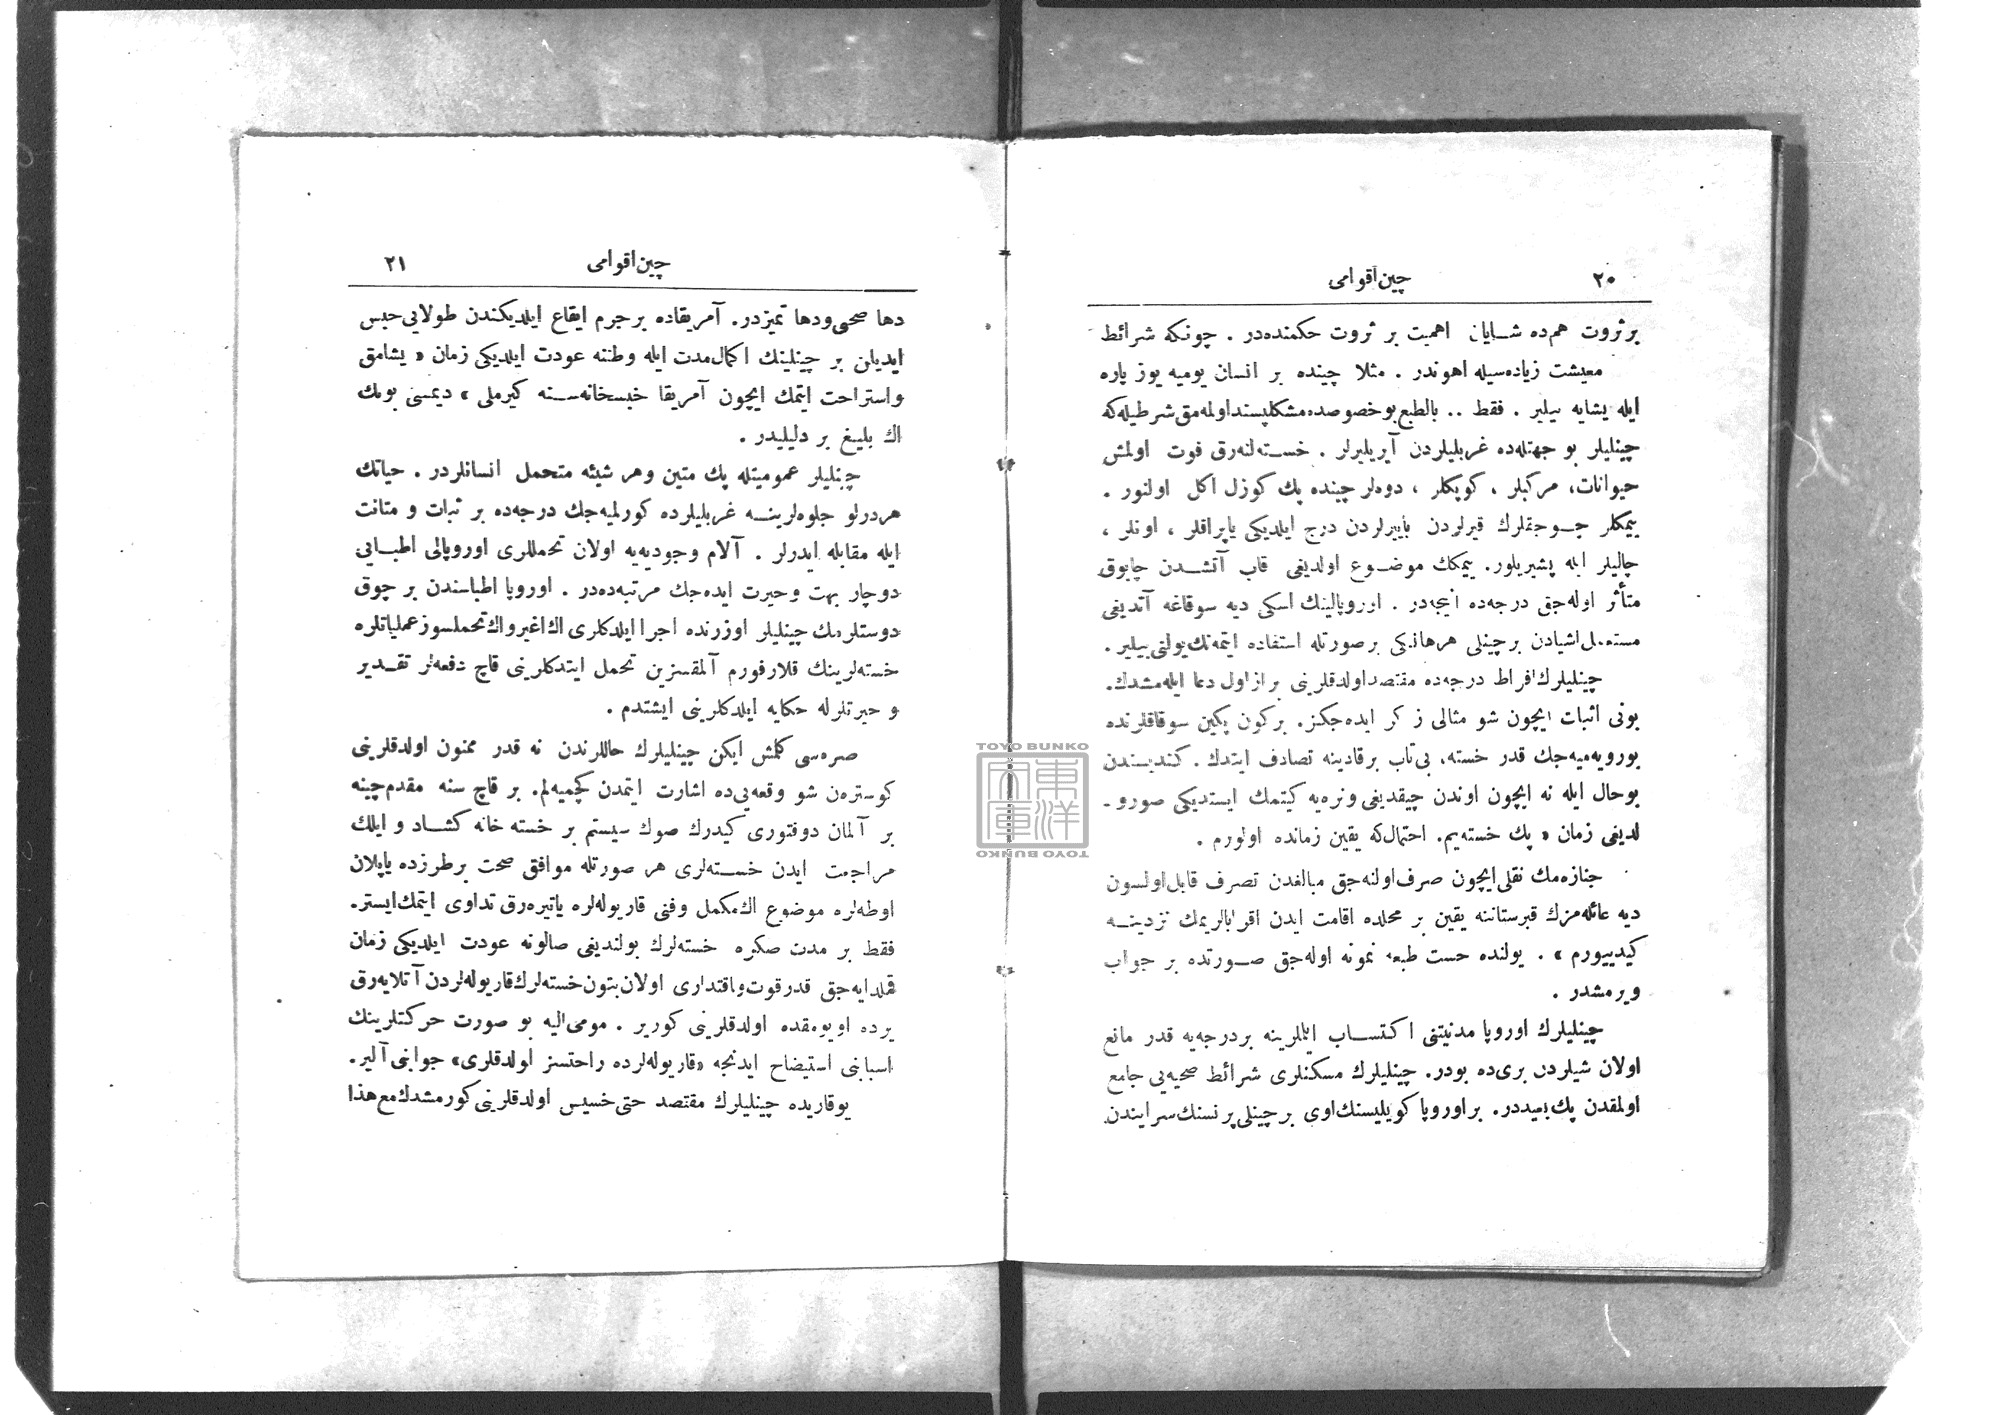 ٢٠
چین اقوامی
بر ثروت هم‌ده شــایان اهمیت بر ثروت حکمنده‌در . چونکه شرائط
معیشت زیاده‌سیله اهوندر . مثلا چینده بر انسان یومیه یوز پاره
ایله یشایه بیلیر . فقط .. بالطبع بو خصوصده مشکلپسند اولمه‌مق شرطیله که
چینلیلر بو جهتله‌ده غربلیلردن آیریلیرلر . خســته‌لنه‌رق فوت اولمش
حیوانات، مرکبلر ، کوپکلر ، دوه‌لر چینده پك کوزل اکل اولنور .
ییمکلر جــوجقلرك قیرلردن بایرلردن درج ایلدیکی یاپراقلر ، اوتلر ،
چالیلر ایله پیشیریلور. ییمکك موضــوع اولدیغی قاب آتشــدن چابوق
متأثر اوله‌جق درجه‌ده اینجه‌در . اوروپالینك اسکی دیه سوقاغه آتدیغی
مستعمل اشیادن بر چینلی هر هانیکی بر صورتله استفاده ایتمه‌نك یولنی بیلیر .
چینلیلرك افراط درجه‌ده مقتصد اولدقلرینی بر از اول دعا ایله‌مشدك.
بونی اثبات ایچون شو مثالی ذکر ایده‌جکز. بر کون پکین سوقاقلرنده
یورویه‌میه‌جك قدر خسته، بی‌تاب بر قادینه تصادف ایتدك . کندیسندن
بو حال ایله نه ایچون اوندن چیقدیغی و نره‌یه کیتمك ایستدیکی صورو ـ
لدیغی زمان « پك خسته‌یم. احتمال‌که یقین زمانده اولورم .
جنازه‌مك نقلی ایچون صرف اولنه‌جق مبالغدن تصرف قابل اولسون
دیه عائله‌مزك قبرستاننه یقین بر محلده اقامت ایدن اقربالریمك نزدینــه
کیدییورم » . یولنده حست طبعه نمونه اوله‌جق صــورتده بر جواب
ویرمشدر .
چینلیلرك اوروپا مدنیتنی اکتســاب ایتملرینه بر درجه‌یه قدر مانع
اولان شیلردن بری‌ده بودر. چینلیلرك مسکنلری شرائط صحیه‌یی جامع
اولمقدن پك بعیددر. بر اوروپا کویلیسنك اوی بر چینلی پرنسنك سرایندن
چین اقوامی
٢١
دها صحی و دها تمیزدر. آمریقاده بر جرم ایقاع ایلدیکندن طولایی حبس
ایدیلن بر چینلینك اکمال مدت ایله وطننه عودت ایلدیکی زمان « یشامق
و استراحت ایتمك ایچون آمریقا حبسخانه‌ســنه کیرملی » دیمسی بونك
اك بلیغ بر دلیلیدر .
چینلیلر عمومیتله پك متین و هر شیئه متحمل انسانلردر . حیاتك
هر درلو جلوه‌لرینــه غربلیلرده کورلمیه‌جك درجه‌ده بر ثبات و متانت
ایله مقابله ایدرلر . آلام وجودیه‌یه اولان تحمللری اوروپالی اطبــایی
دوچار بهت و حیرت ایده‌جك مرتبه‌ده‌در . اوروپا اطباسندن بر چوق
دوستلرمك چینلیلر اوزرنده اجرا ایلدکلری اك اغیر و اك تحملسوز عملیاتلره
خسته‌لرینك قلارفورم آلمقسزین تحمل ایتدکلرینی قاچ دفعه‌لر تقــدیر
و حیرتلرله حکایه ایلدکلرینی ایشتدم .
صره‌سی کلمش ایکن چینلیلرك حاللرندن نه قدر ممنون اولدقلرینی
کوسترەن شو وقعه‌یی‌ده اشارت ایتمدن کچمیه‌لم. بر قاچ سنه مقدم چینه
بر آلمان دوقتوری کیدرك صوك سیستم بر خسته خانه کشــاد و ایلك
مراجعت ایدن خســته‌لری هر صورتله موافق صحت بر طرزده یاپیلان
اوطه‌لره موضوع اك مکمل و فنی قاریوله‌لره یاتیره‌رق تداوی ایتمك ایستر.
فقط بر مدت صکره خسته‌لرك بولندیغی صالونه عودت ایلدیکی زمان
قملدایه‌جق قدر قوت و اقتداری اولان بتون خسته‌لرك قاریوله‌لردن آتلایه‌رق
یرده اویومقده اولدقلرینی کوریر . مومی‌الیه بو صورت حرکتلرینك
اسبابنی استیضاح ایدنجه «قاریوله‌لرده راحتسز اولدقلری» جوابنی آلیر.
یوقاریده چینلیلرك مقتصد حتی خسیس اولدقلرینی کورمشدك مع هذا
TOYO BUNKO
東洋文庫
TOYO BUNKO